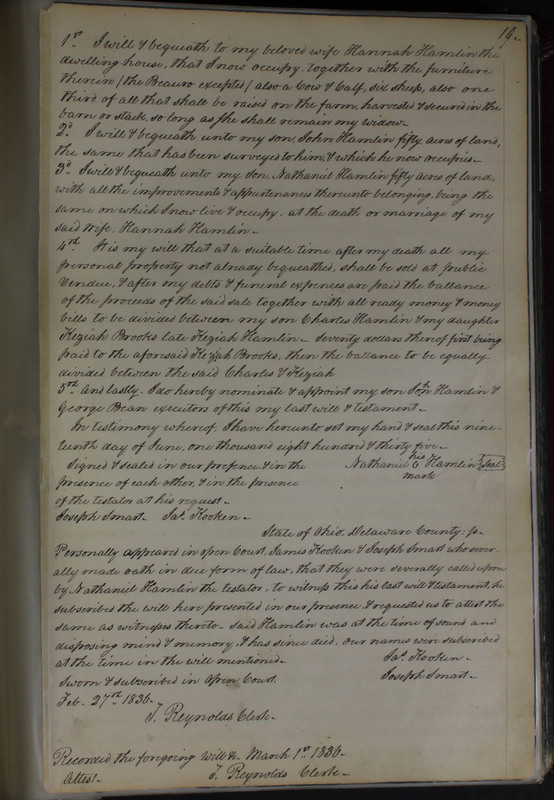 19.
1st. I will & bequeath to my beloved wife Hannah Hamlin the
dwelling house, that I now occupy, together with the furniture
therein (the Beauro excepted) also a Cow & Calf, six sheep, also one
third of all that shall be raised on the farm, harvested & secured in the
barn or stack, so long as she shall remain my widow.
2d. I will & bequeath unto my son, John Hamlin fifty acres of land,
the same that has been surveyed to him, & which he now occupies.
3d. I will & bequeath unto my son, Nathaniel Hamlin fifty acres of land,
with all the improvements & appurtenances thereunto belonging, being the
same on which I now live & occupy, at the death or marriage of my
said wife, Hannah Hamlin.
4rd. It is my will that at a suitable time after my death all my
personal property not already bequeathed, shall be sold at public
Vendue, & after my debts & funeral expences are paid the ballance
of the proceeds of the said sale together with all ready money & money
bills to be divided between my son Charles Hamlin & my daughter
Keziah Brooks late Keziah Hamlin – seventy dollars thereof first being
paid to the aforesaid Keziah Brooks, then the ballance to be equally
divided between the said Charles & Keziah
5rd. And lastly. I do hereby nominate & appoint my son Jon Hamlin &
George Bean executors of this my last will & testament.
In testimony whereof, I have hereunto set my hand & seal this nine-
teenth day of June, one thousand eight hundred & thirty five.
his
Signed & sealed in our presence & in the Nathaniel C Hamlin Seal
presence of each other, & in the presence mark
of the testator at his request.
Joseph Smart. Jas. Kooken.
State of Ohio, Delaware County: ss.
Personally appeared in open Court, James Kooken & Joseph Smart who sever-
ally made oath in due form of law, that they were severally called upon
by Nathaniel Hamlin the testator, to witness this his last will & testament, he
subscribed the will here presented in our presence & requested us to attest the
same as witness thereto. said Hamlin was at the time of sound and
disposing mind & memory, & has since died, our names were subscribed
at the time in the will mentioned. Jas. Kooken.
Sworn & subscribed in open Court Joseph Smart.
Feb. 27rd. 1836.
T. Reynolds Clerk.
Recorded the foregoing Will &c. March 1st. 1836.
Attest. T. Reynolds Clerk.